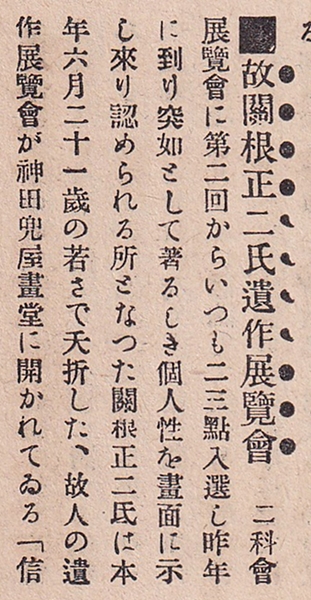 ■故關根正二氏遺作展覽會 二科會
展覽會に第二回からいつも二三點入選し昨年
に到り突如として著るしき個人性を畫面に示
し來り認められる所となつた關根正二氏は本
年六月二十一歲の若さで夭折した、故人の遺
作展覽會が神田兜屋畫堂に開かれてゐる「信